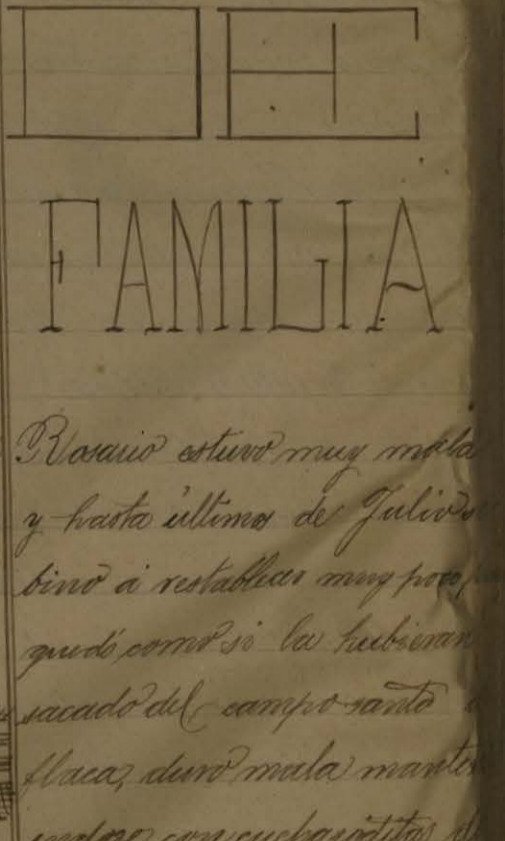 DE
FAMILIA
Rosario estuvo muy mala
y hasta última de Julio
bino á restablecer muy poco
quedó como si la hubieran
sacado del campo santo
flaca, duró mala
con cucharaditas